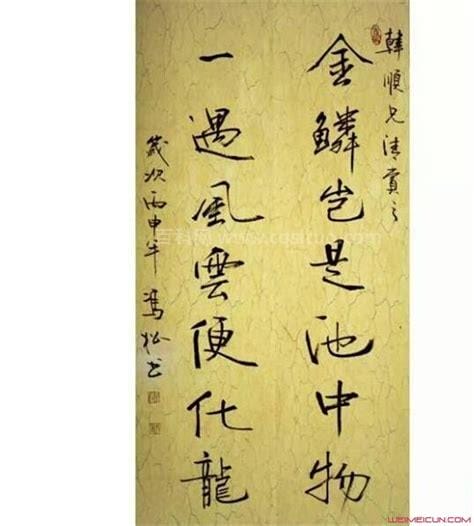 韓順兄清賞之
金鱗岂是池中物
一遇風雲便化龍
歲次丙申年馮松书
WEIMEICUN.COM